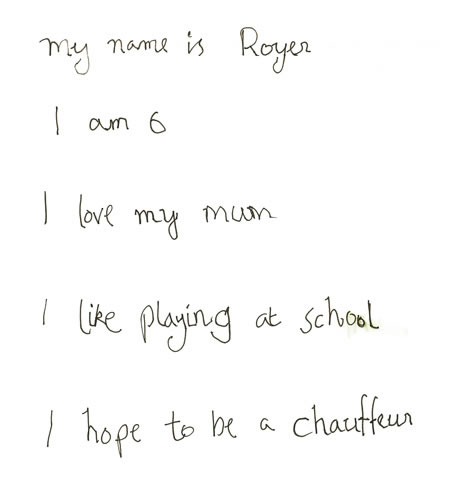 my name is Royer
I am 6
I love my mum
I like playing at school
I hope to be a chauffeur